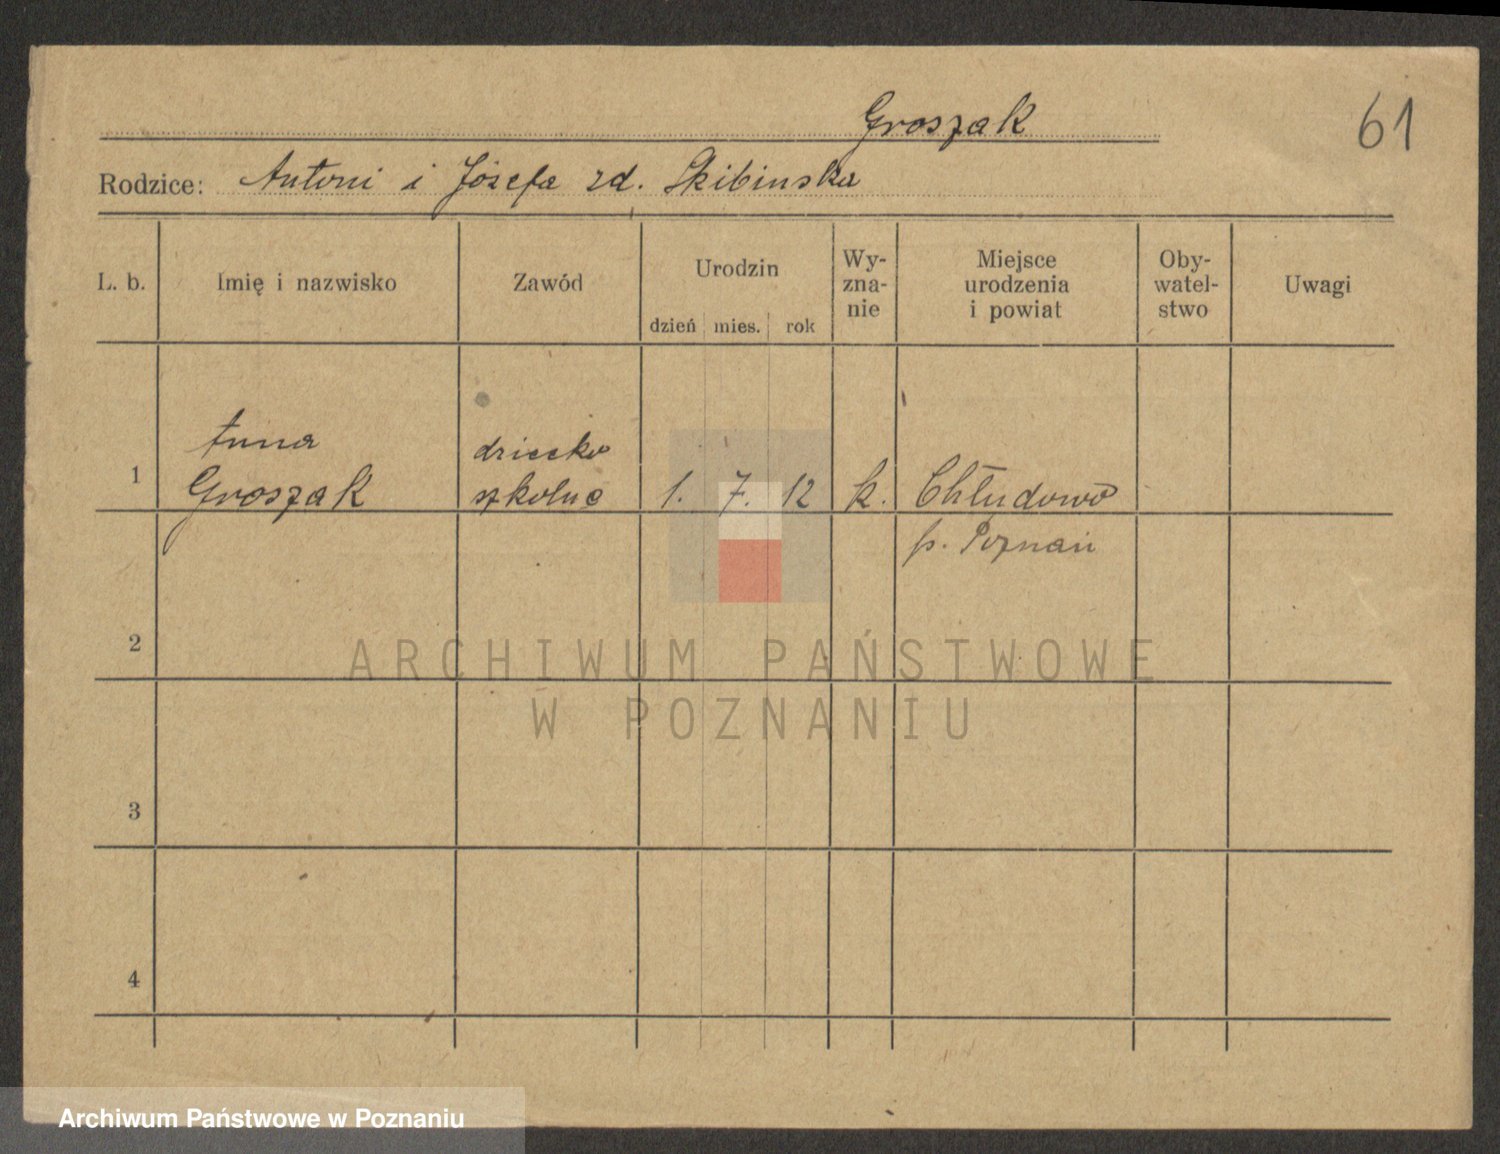 Groszak
61
Rodzice: Antoni i Józefa zd. Skibinska
L. b.
Imię i nazwisko
Zawód
Urodzin
dzień mies. rok
Wy-
zna-
nie
Miejsce
urodzenia
i powiat
Oby-
watel-
stwo
Uwagi
1
Anna
Groszak
dziecko
szkolne
1. 7. 12
k.
Chłudowo
p. Poznań
2
ARCHIWUM PAŃSTWOWE
W POZNANIU
3
4
Archiwum Państwowe w Poznaniu